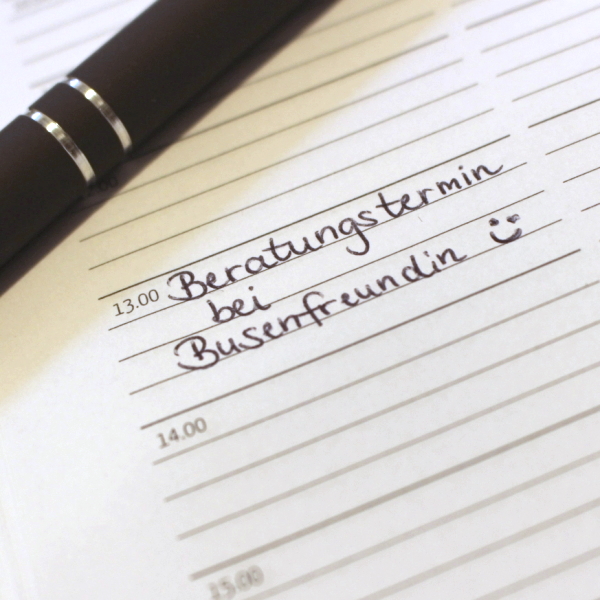 13.00 Beratungstermin
bei
Busenfreundin
14.00
15.00